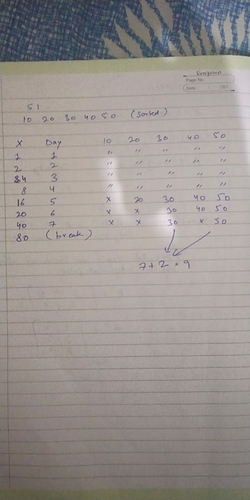 Page No.
Date
51
10 20 30 40 50 (sorted)
X Day 10 20 30 40 50
1 1 " " " " "
2 2 " " " " "
84 3 " " " " "
8 4 " " " " "
16 5 x 20 30 40 50
20 6 x x 30 40 50
40 7 x x 30 x 50
80 (break)
7+2 = 9